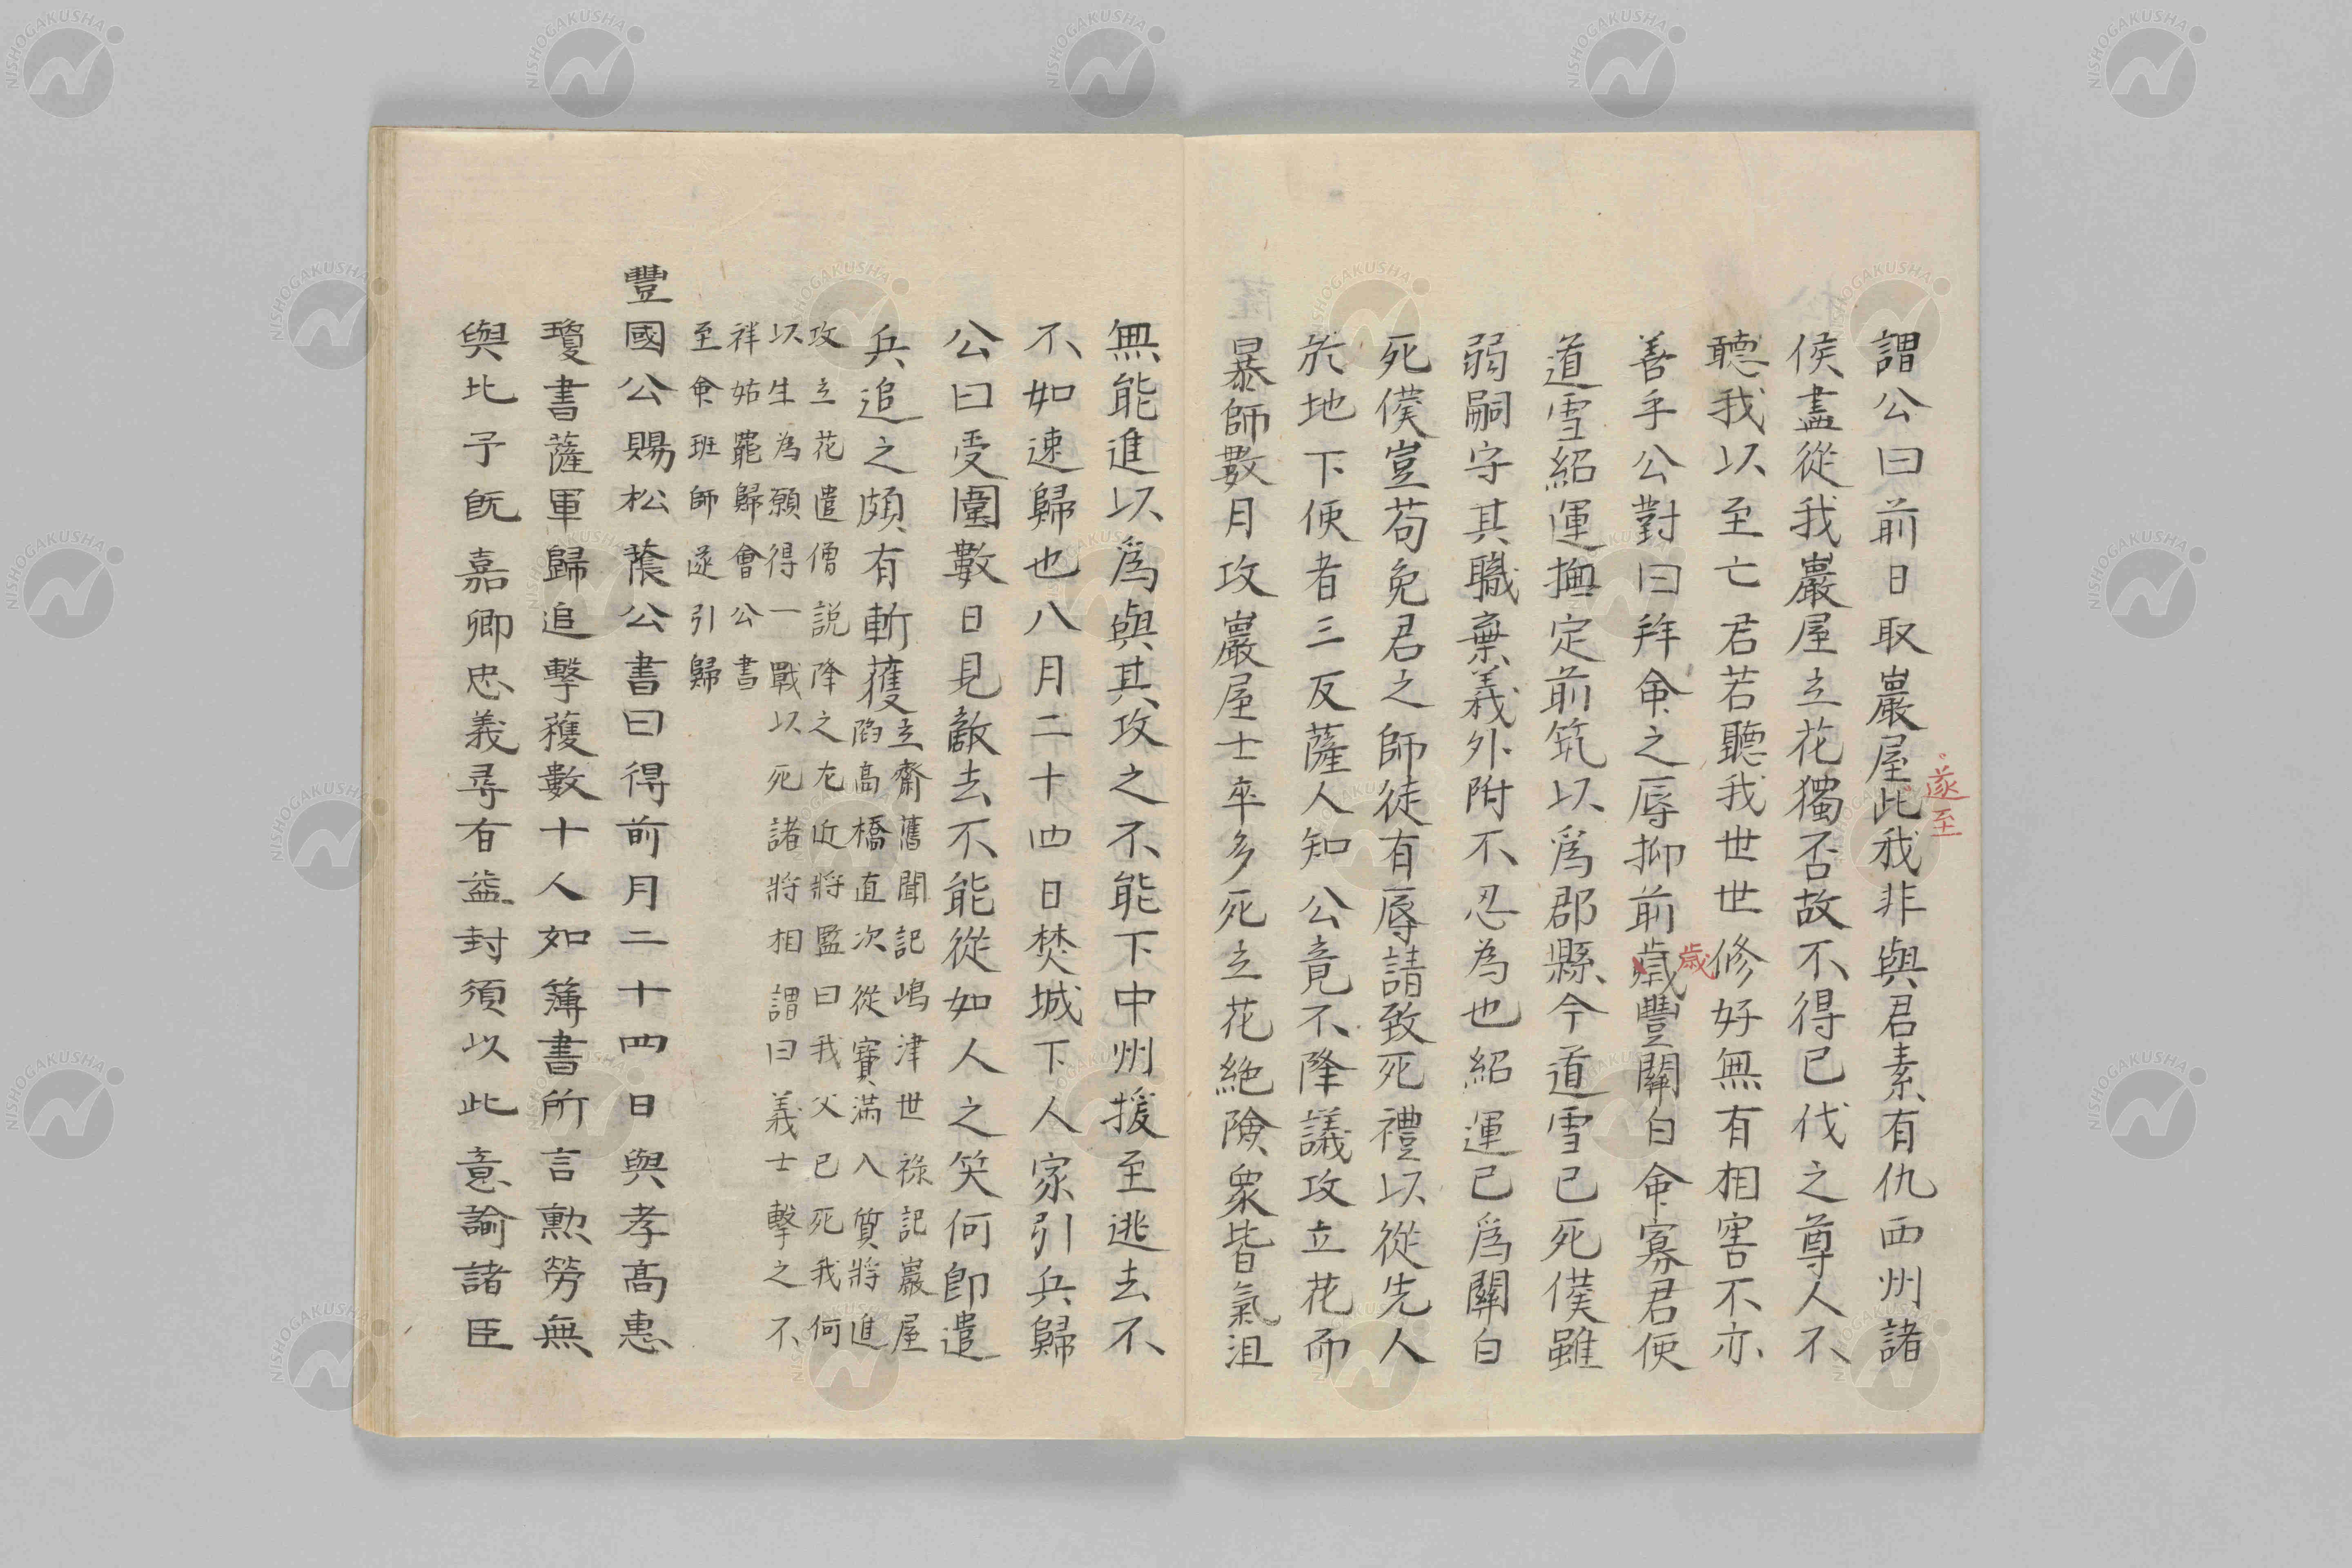 謂公曰前日取巖屋此我非與君素有仇西州諸
遂至
侯盡從我巖屋立花獨否故不得已伐之尊人不
聽我以至亡君若聽我世世修好無有相害不亦
善乎公對曰拜命之辱抑前歳豐關白命寡君使
歳
道雪紹運撫定前筑以爲郡縣今道雪已死僕雖
弱嗣守其職棄義外附不忍為也紹運已爲關白
死僕豈苟免君之師徒有辱請致死禮以從先人
於地下使者三反薩人知公竟不降議攻立花而
暴師數月攻巖屋士卒多死立花絶險衆皆氣沮
無能進以爲與其攻之不能下中州援至逃去不
不如速歸也八月二十四日焚城下人家引兵歸
公曰受圍數日見敵去不能從如人之笑何卽遣
兵追之頗有斬獲
立齋舊聞記嶋津世祿記巖屋
䧟高橋直次從寳滿入質將進
攻立花遣僧説降之左近將監曰我父已死我何
以生為願得一戰以死諸將相謂曰義士擊之不
祥姑罷歸會公書
至命班師遂引歸
豐國公賜松蔭公書曰得前月二十四日與孝高惠
瓊書薩軍歸追擊獲數十人如簿書所言勲勞無
與比予既嘉卿忠義尋有益封須以此意諭諸臣
NISHOGAKUSHA